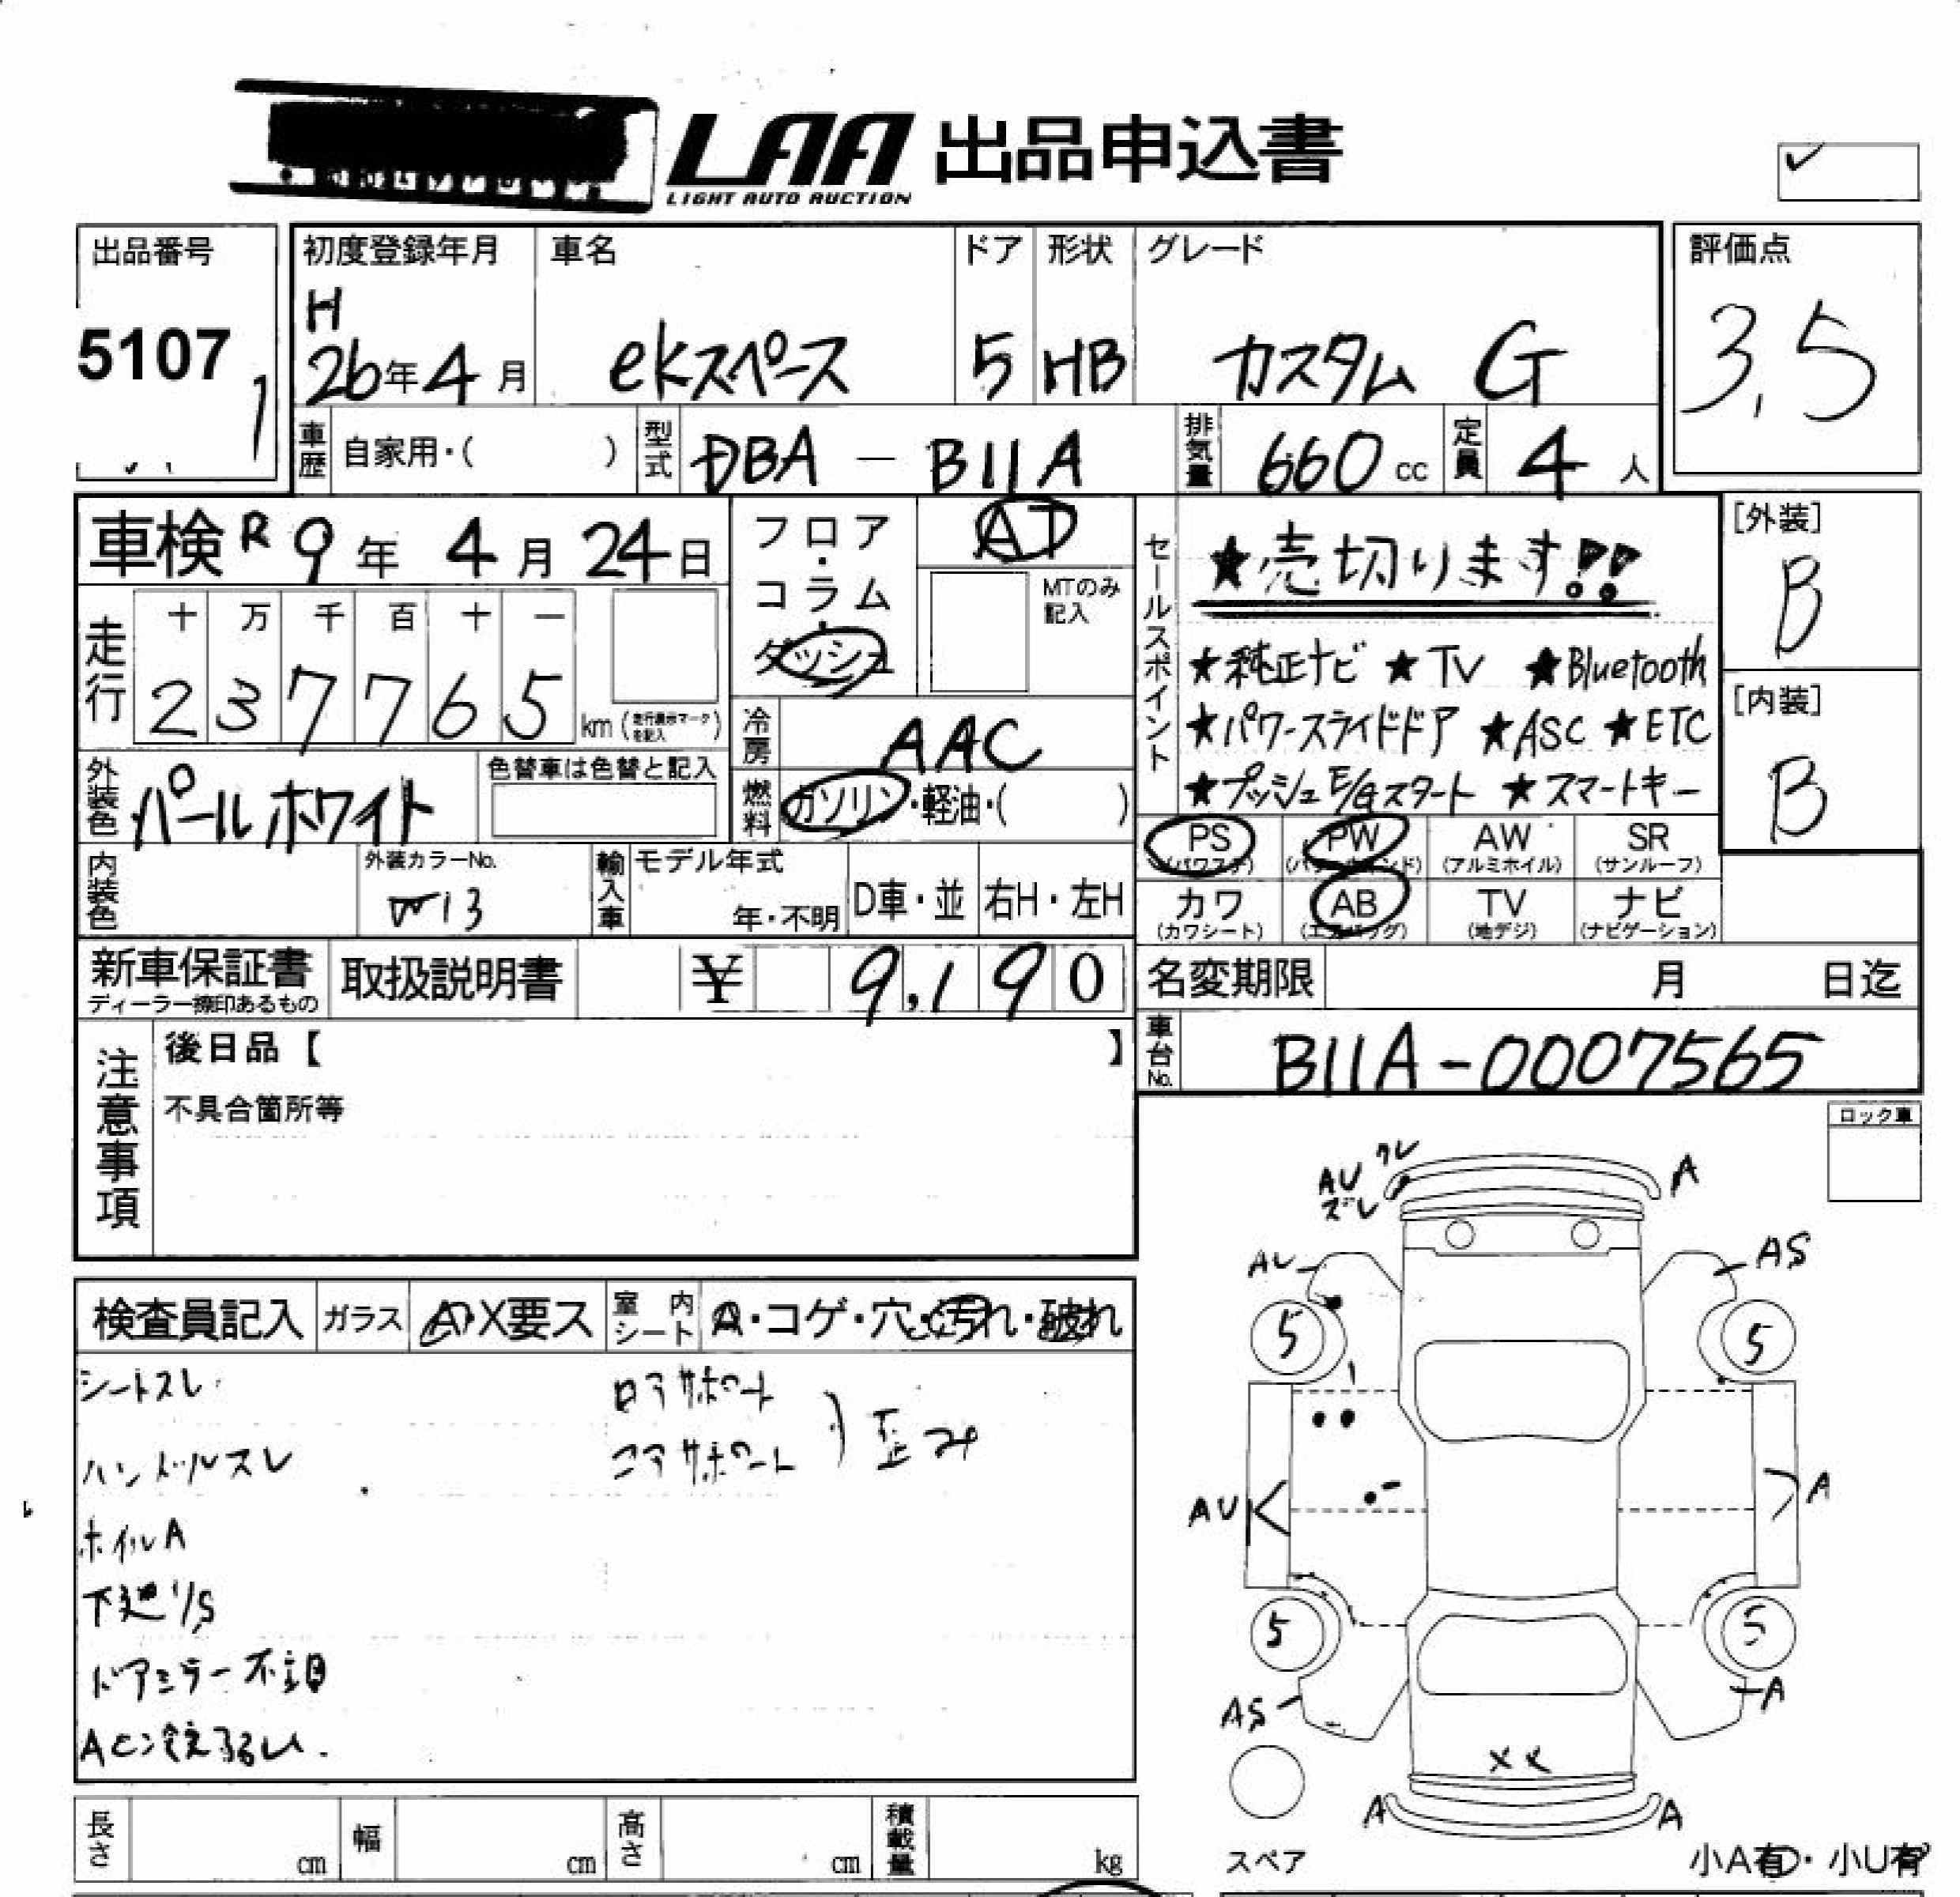 LAA 出品申込書
LIGHT AUTO AUCTION
出品番号 初度登録年月 車名 ドア 形状 グレード 評価点
5107 1 H 26年4月 ekスペース 5 HB カスタム G 3.5
車歴 自家用・( ) 型式 DBA - B11A 排気量 660 cc 定員 4 人
車検 R 9 年 4 月 24 日
フロア・コラム・ダッシュ
AT
MTのみ記入
セールスポイント
★売切ります!!
★純正ナビ ★TV ★Bluetooth
★パワースライドドア ★ASC ★ETC
★プッシュE/Gスタート ★スマートキー
[外装]
B
[内装]
B
走行 十 万 千 百 十 一
2 3 7 7 6 5 km (走行表示マークを記入)
冷房 AAC
燃料 ガソリン・軽油・( )
外装色 パールホワイト 色替車は色替と記入
PS (パワステ) PW (パワーウインド) AW (アルミホイル) SR (サンルーフ)
カワ (カワシート) AB (エアバッグ) TV (地デジ) ナビ (ナビゲーション)
内装色 外装カラーNo. W13 輸入車 モデル年式 年・不明 D車・並 右H・左H
新車保証書 取扱説明書 ¥ 9,190
ディーラー捺印あるもの
名変期限 月 日迄
車台No. B11A-0007565
注意事項
後日品【 】
不具合箇所等
ロック車
検査員記入 ガラス A・X要ス 室内シート A・コゲ・穴・汚れ・破れ
シートスレ ロアサポート
ハンドルスレ コアサポート 歪み
ホイルA
下廻りS
ドアミラー不良
AC冷えるい.
ワレ
AU A
ズレ
AU AS
5 5
AU A
5 5
AS A
XX
A A
スペア 小A有・小U有
長さ cm 幅 cm 高さ cm 積載量 kg